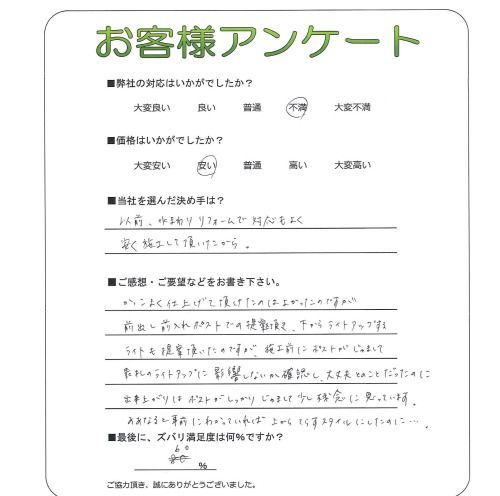 お客様アンケート
■弊社の対応はいかがでしたか？
大変良い 良い 普通 不満 大変不満
■価格はいかがでしたか？
大変安い 安い 普通 高い 大変高い
■当社を選んだ決め手は？
以前、水まわりリフォームで対応もよく
安く施工して頂いたから。
■ご感想・ご要望などをお書き下さい。
かっこよく仕上げて頂けたのはよかったのですが
前出し前入れポストでの提案頂き、下からライトアップする
ライトも提案頂いたのですが、施工前にポストがじゃまして
表札のライトアップに影響しないか確認し、大丈夫とのことだったのに
出来上がりはポストがしっかりじゃまして少し残念に思っています。
ああなると事前にわかっていれば上からてらすスタイルにしたのに…。
■最後に、ズバリ満足度は何％ですか？
60
80
％
ご協力頂き、誠にありがとうございました。